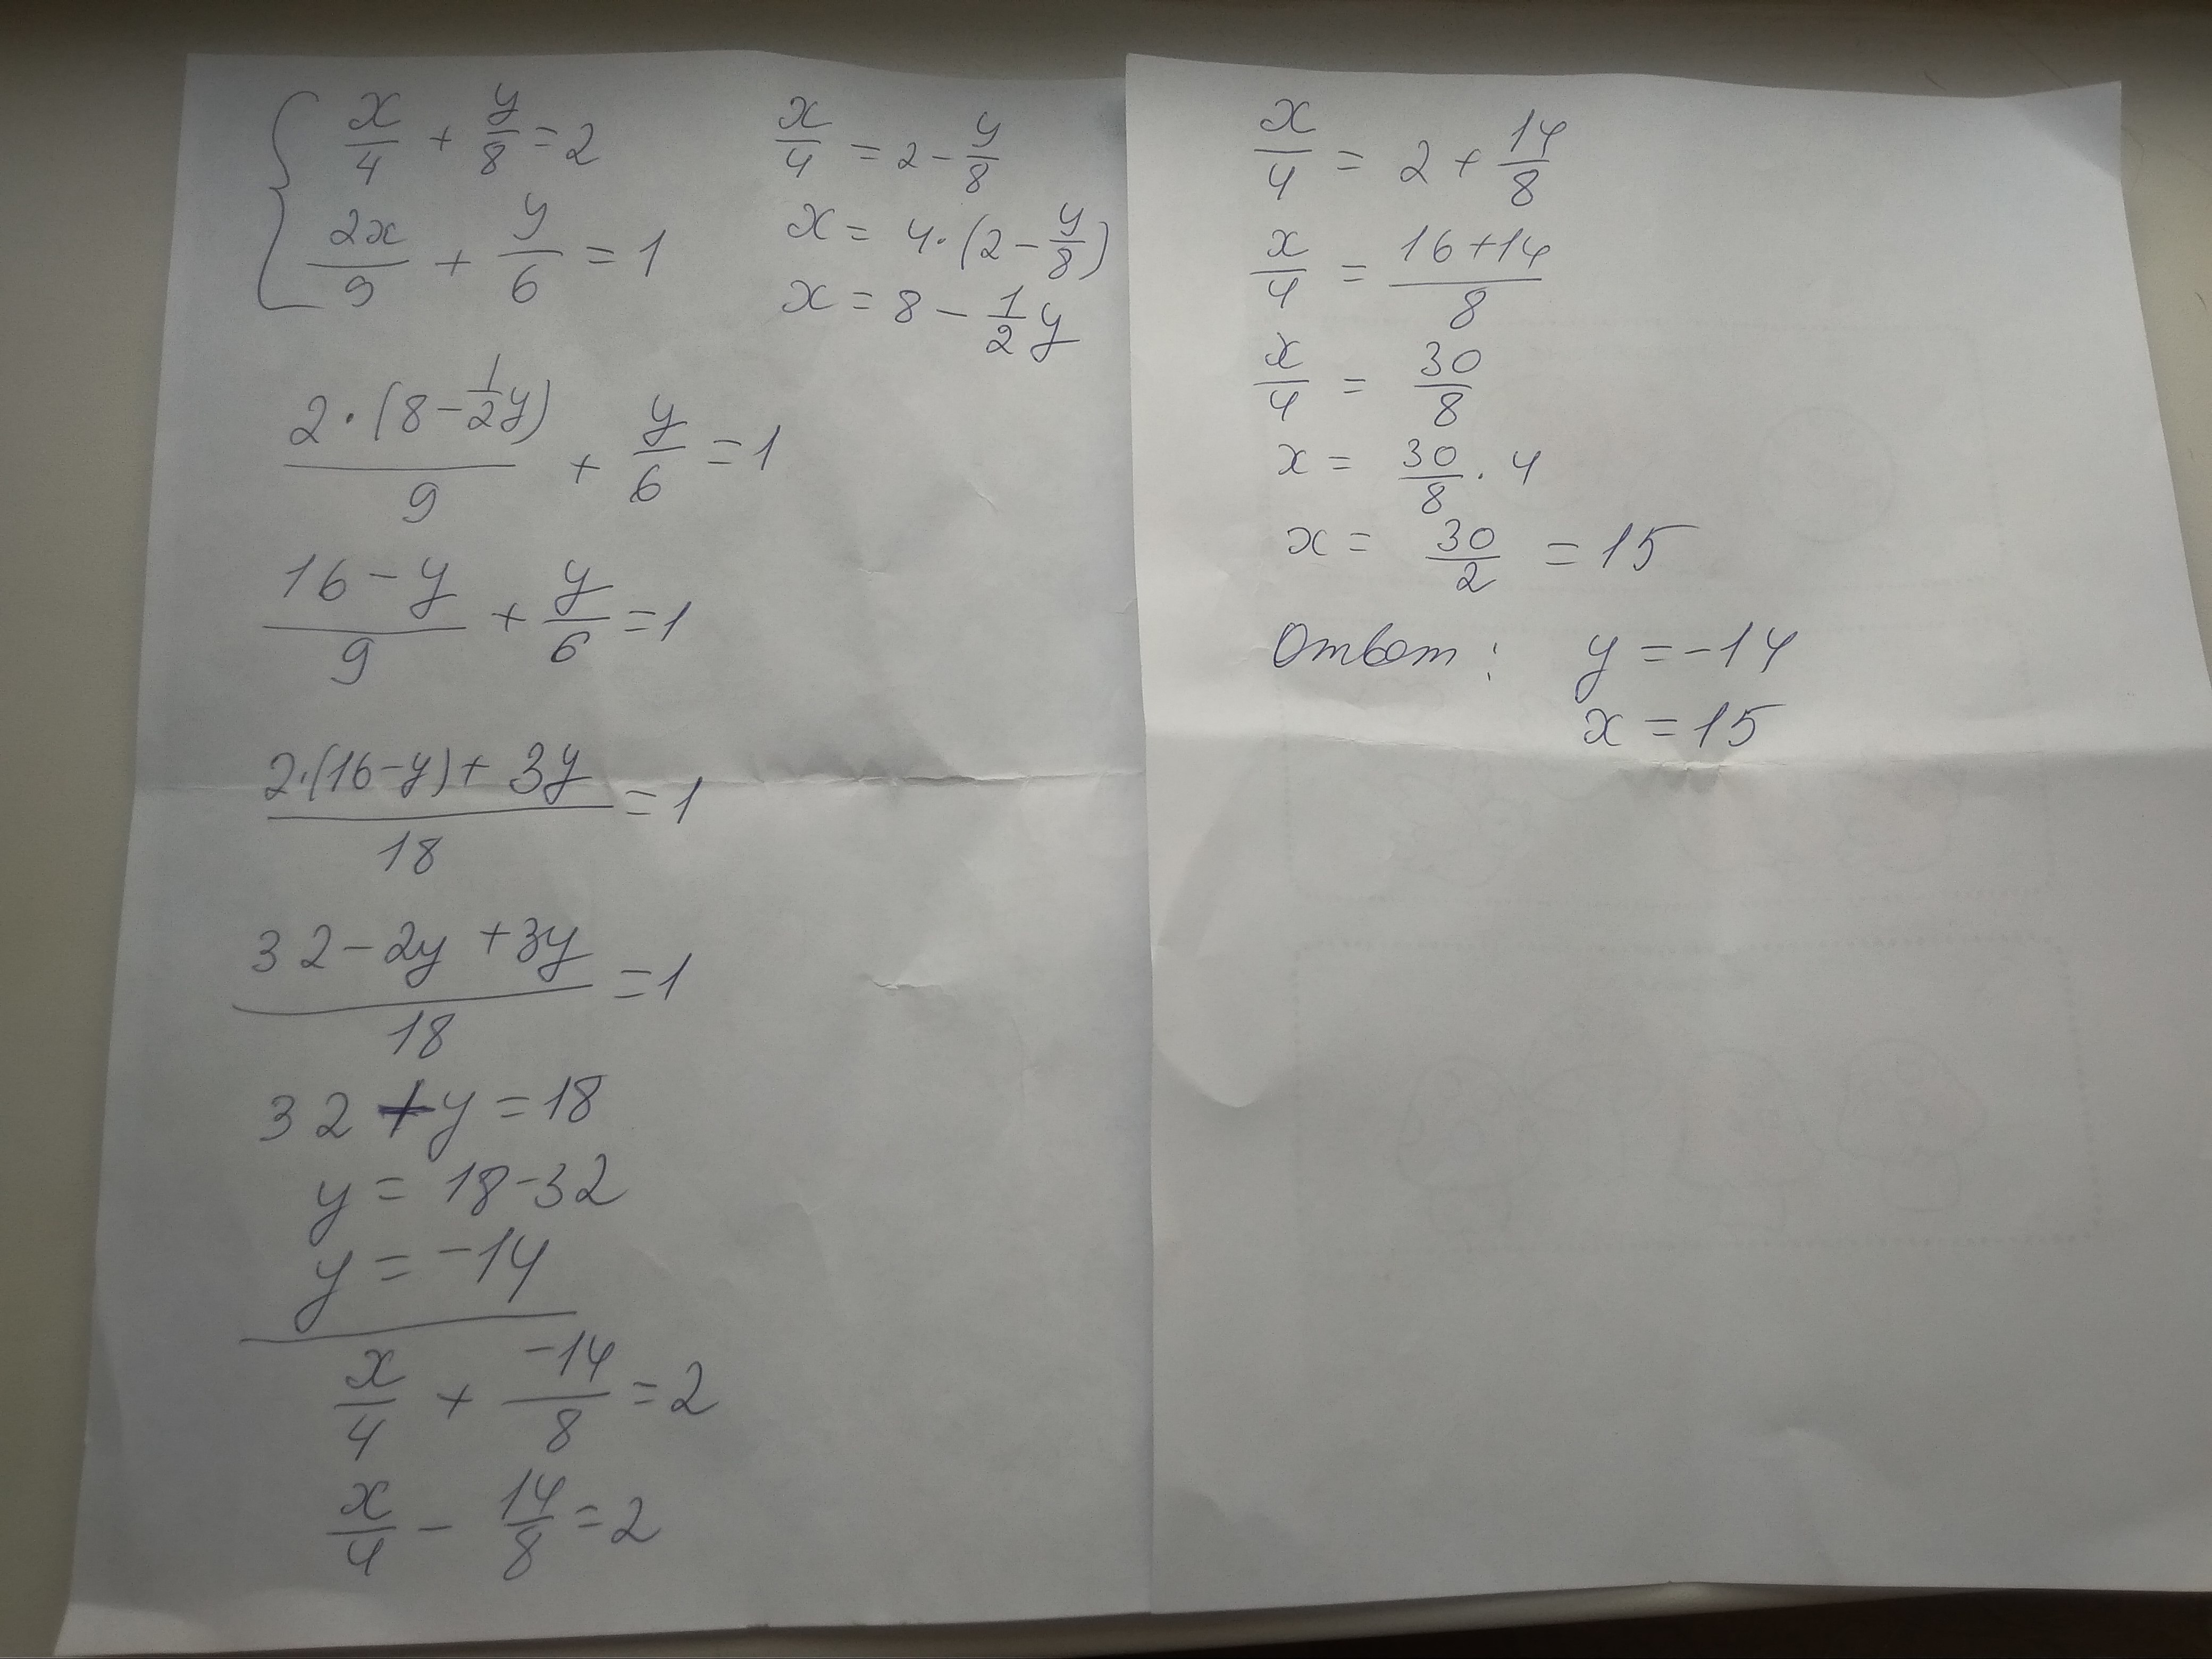 x/4 + y/8 = 2
2x/9 + y/6 = 1
x/4 = 2 - y/8
x = 4·(2 - y/8)
x = 8 - 1/2 y
2·(8 - 1/2 y)/9 + y/6 = 1
16 - y/9 + y/6 = 1
2·(16-y) + 3y/18 = 1
32 - 2y + 3y/18 = 1
32 + y = 18
y = 18 - 32
y = -14
x/4 + -14/8 = 2
x/4 - 14/8 = 2
x/4 = 2 + 14/8
x/4 = 16+14/8
x/4 = 30/8
x = 30/8 · 4
x = 30/2 = 15
Ответ: y = -14
x = 15